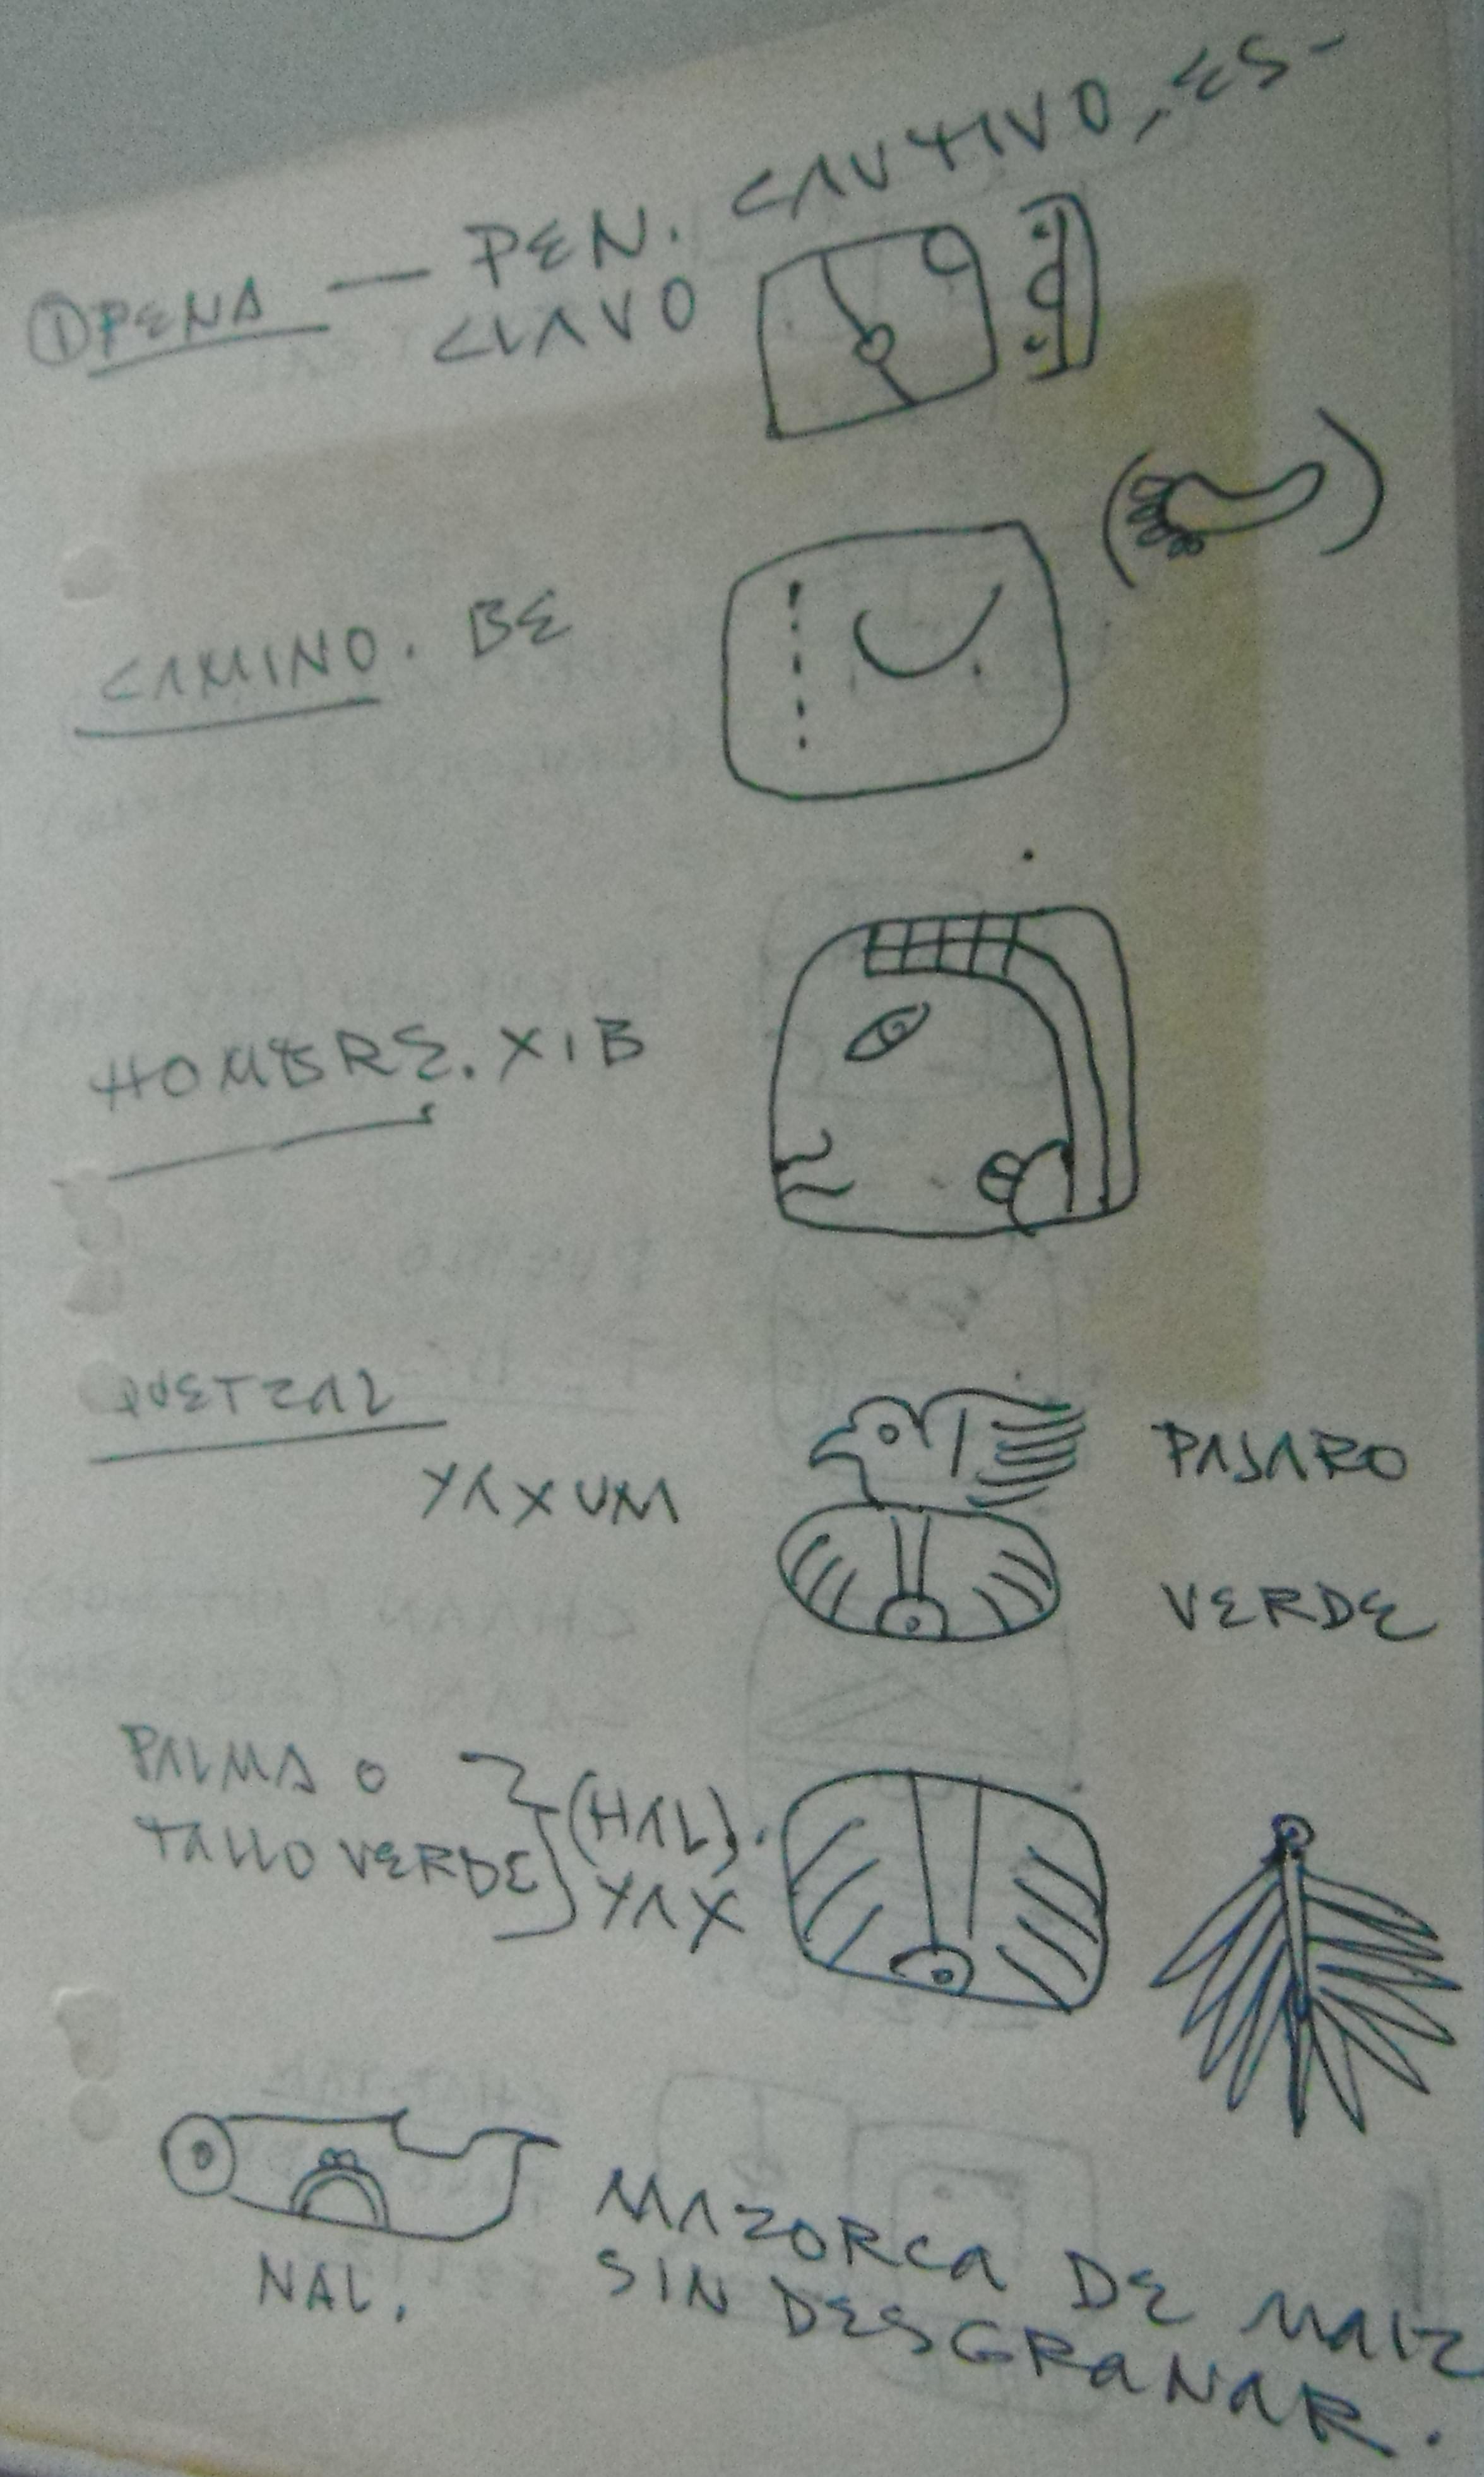 ① PENA — PEN. CAUTIVO, ES-
CLAVO
CAMINO. BE
HOMBRE. XIB
QUETZAL
YAXUM
PAJARO
VERDE
PALMA O
TALLO VERDE
(HAL).
YAX
NAL.
MAZORCA DE MAIZ
SIN DESGRANAR.